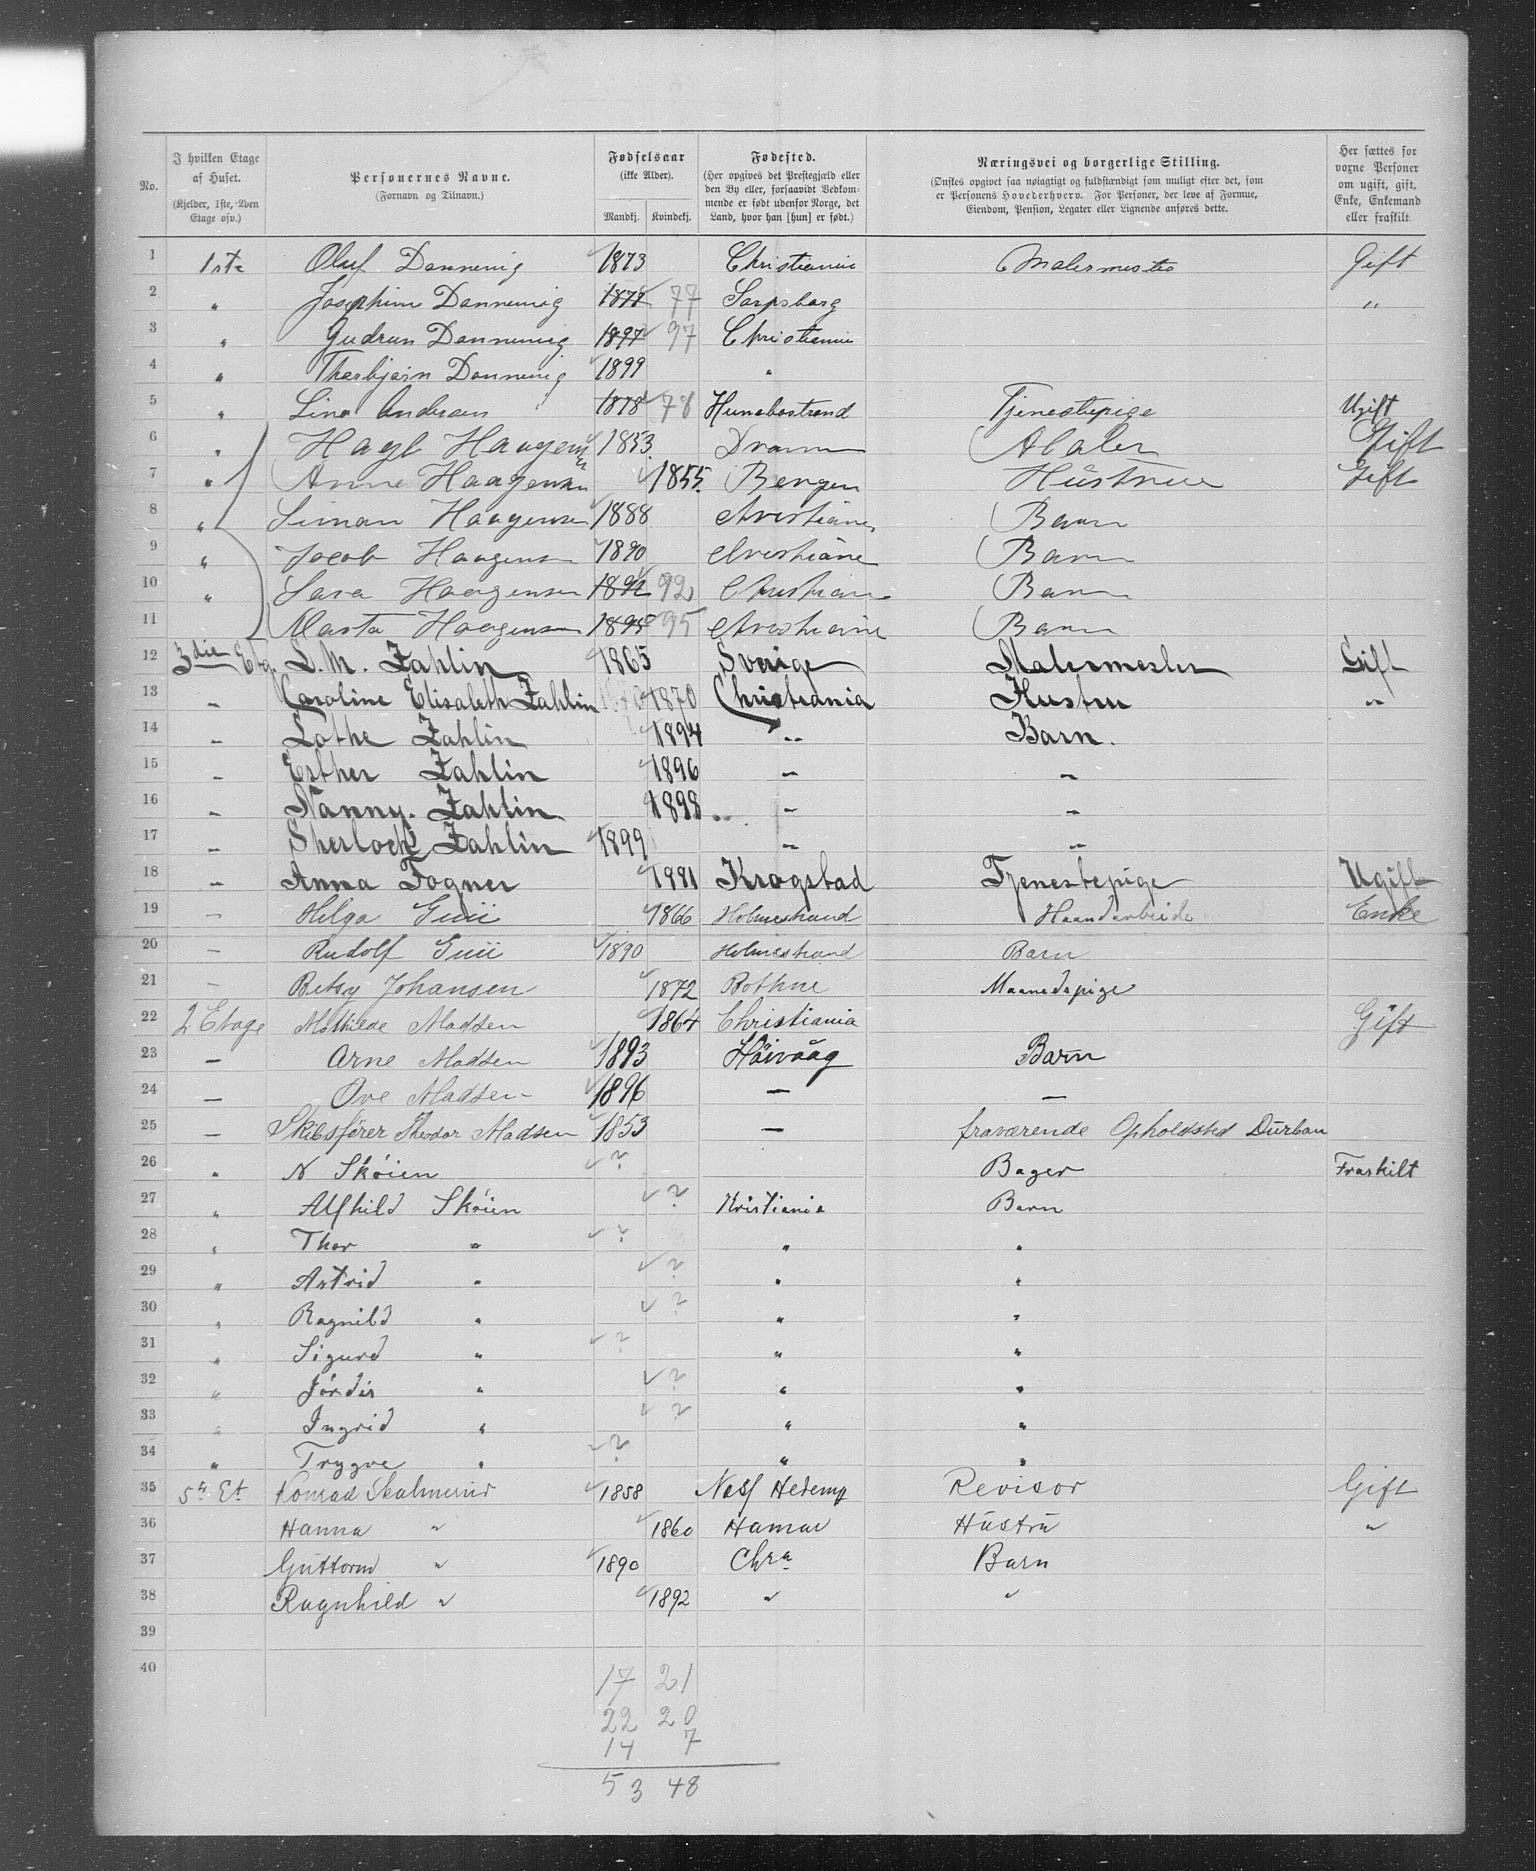 No. | I hvilken Etage af Huset. (Kjelder, 1ste, 2den Etage osv.) | Personernes Navne. (Fornavn og Tilnavn.) | Fødselsaar (ikke Alder). Mandkj. Kvindekj. | Fødested. (Her opgives det Prestegjæld eller den By eller, forsaavidt Vedkommende er født udenfor Norge, det Land, hvor han [hun] er født.) | Næringsvei og borgerlige Stilling. (Ønskes opgivet saa nøiagtigt og fuldstændigt som muligt efter det, som er Personens Hovederhverv. For Personer, der leve af Formue, Eiendom, Pension, Legater eller Lignende anføres dette. | Her sættes for voxne Personer om ugift, gift, Enke, Enkemand eller fraskilt.
1 1ste Oluf Dannevig 1873 Christiania Malermester Gift
2 " Josephine Dannevig 1877 77 Sarpsborg "
3 " Gudrun Dannevig 1897 97 Christiania
4 " Thorbjørn Dannevig 1899 "
5 " Lina Andersen 1878 78 Hunebostrand Tjenestepige Ugift
6 " Haagensen 1853 Dramm Maler Gift
7 " Anne Haagensen 1855 Bergen Hustrue Gift
8 " Simon Haagensen 1888 Christiania Barn
9 " Jacob Haagensen 1890 Christiania Barn
10 " Sara Haagensen 1892 92 Christiania Barn
11 Marta Haagensen 1895 95 Christiania Barn
12 3die Etg. L. M. Zahlin 1865 Sverige Malermester Gift
13 " Caroline Elisabeth Zahlin 1870 Christiania Hustru "
14 " Lothe Zahlin 1894 " Barn.
15 " Esther Zahlin 1896 " "
16 " Nanny. Zahlin 1898 " "
17 " Sherlock Zahlin 1899 " "
18 " Anna Fogner 1881 Krogstad Tjenestepige Ugift
19 — Helga Guii 1866 Holmestrand Haandarbeide Enke
20 — Rudolf Guii 1890 Holmestrand Barn
21 — Betsy Johansen 1872 Bothne Maanedspige
22 2 Etage Mathilde Madsen 1864 Christiania Gift
23 — Arne Madsen 1893 Høivaag Barn
24 — Ove Madsen 1896 — —
25 — Skibsfører Theodor Madsen 1853 — fraværende Opholdsted Durban
26 " N Skøien ? Bager Fraskilt
27 " Alfhild Skøien ? Kristiania Barn
28 " Thor " ? " "
29 " Astrid " ? " "
30 " Ragnild " ? " "
31 " Sigurd " ? " "
32 " Jørdis " ? " "
33 " Ingrid " ? " "
34 " Trygve " ? " "
35 5te Et Konrad 1858 Revisor Gift
36 Hanna " 1860 Hamar Hustru "
37 Guttorm " 1890 Chra Barn
38 Ragnhild " 1892 " "
39
40
17 21
22 20
14 7
53 48